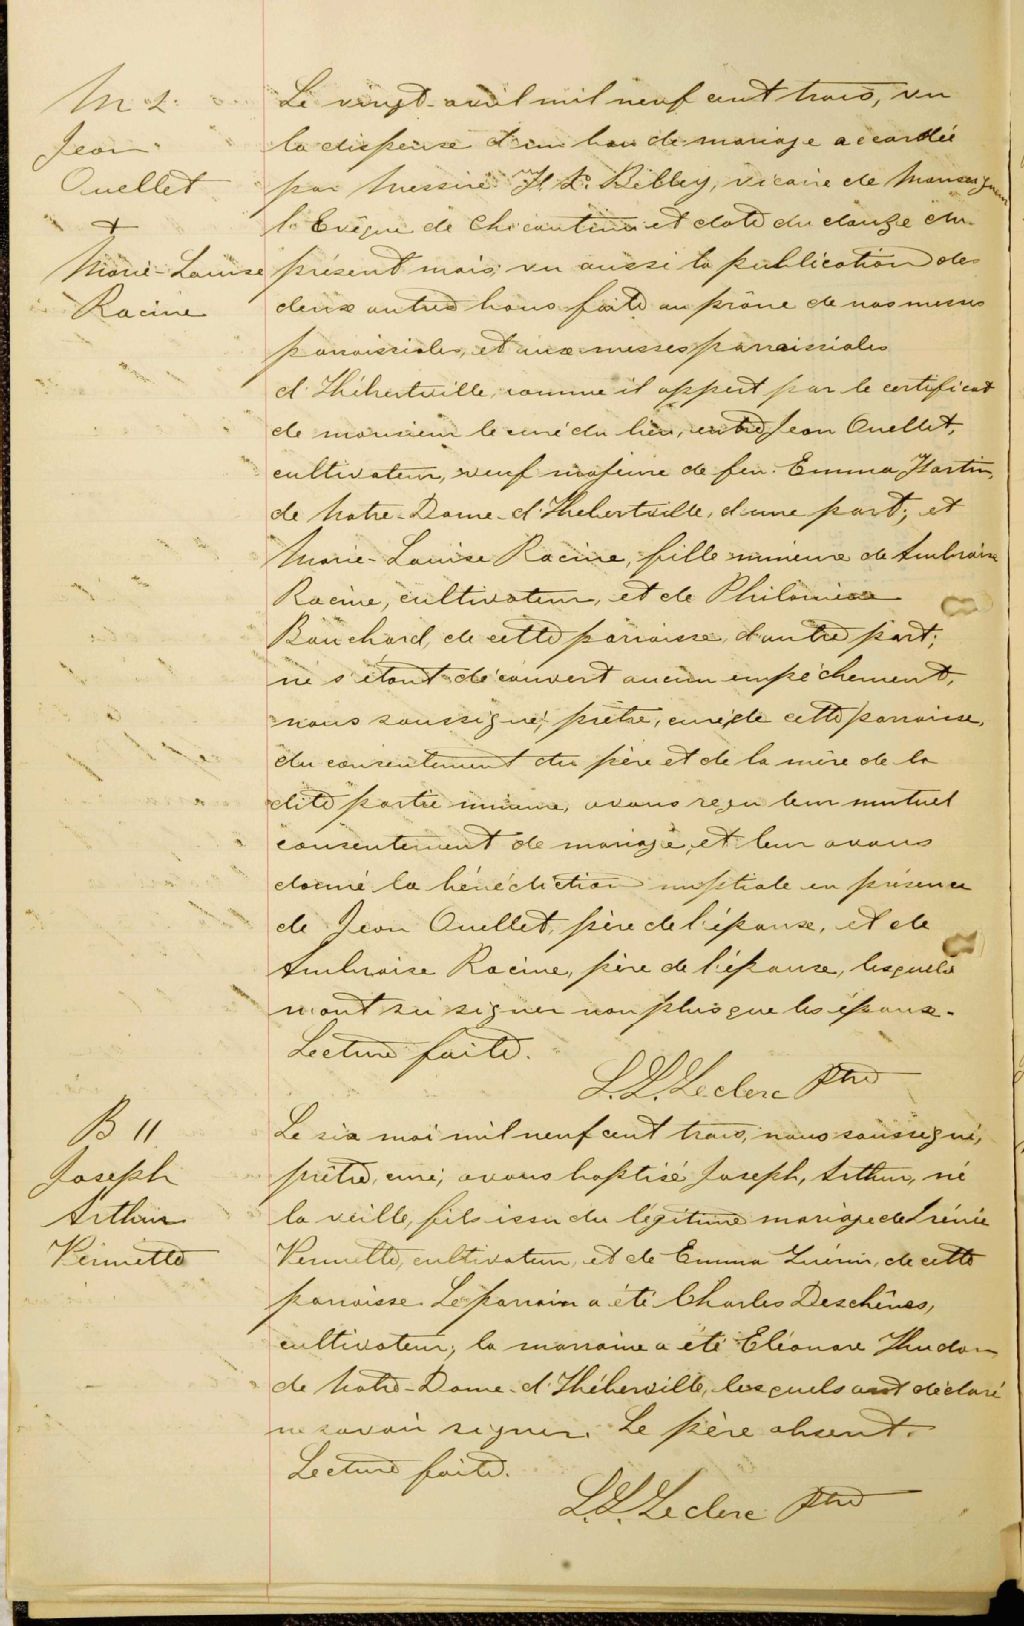 M 2.
Jean
Ouellet
+
Marie-Louise
Racine
Le vingt-avril mil neuf cent trois, vu
la dispense d'un ban de mariage accordée
par Messire F. X. Belley, vicaire de Monseigneur
l'Evêque de Chicoutimi et daté du douze du
présent mois; vu aussi la publication des
deux autres bans faite au prône de nos messes
paroissiales, et aux messes paroissiales
d'Hébertville, comme il appert par le certificat
de monsieur le curé du lieu, entre Jean Ouellet,
cultivateur, veuf majeur de feu Emma
de Notre-Dame-d'Hébertville, d'une part; et
Marie-Louise Racine, fille mineure de Ambroise
Racine, cultivateur, et de Philomène
Bouchard, de cette paroisse, d'autre part;
ne s'étant découvert aucun empêchement,
nous soussigné, prêtre, curé de cette paroisse,
du consentement du père et de la mère de la
dite partie mineure, avons reçu leur mutuel
consentement de mariage, et leur avons
donné la bénédiction nuptiale en présence
de Jean Ouellet, père de l'époux, et de
Ambroise Racine, père de l'épouse, lesquels
n'ont su signer non plus que les époux.
Lecture faite.
L. L. Leclerc Ptre
B 11
Joseph
Arthur
Vermette
Le six mai mil neuf cent trois, nous soussigné,
prêtre, curé, avons baptisé Joseph, Arthur, né
la veille, fils issu du légitime mariage de Irénée
Vermette, cultivateur, et de Emma Guérin, de cette
paroisse. Le parrain a été Charles Deschênes,
cultivateur; la marraine a été Eléonore Hudon
de Notre-Dame-d'Héberville, lesquels ont déclaré
ne savoir signer. Le père absent.
Lecture faite.
L. L. Leclerc Ptre